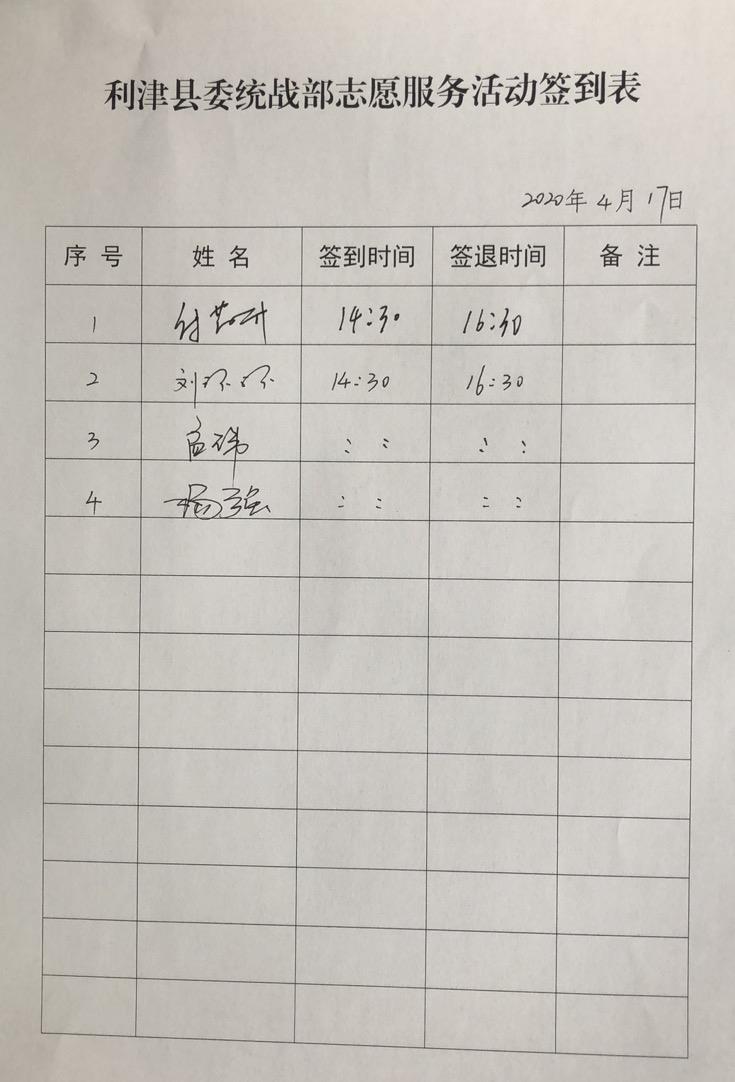 利津县委统战部志愿服务活动签到表
2020年 4月 17日
序 号 姓 名 签到时间 签退时间 备 注
1 14:30 16:30
2 刘环环 14:30 16:30
3 孟玮 : : : :
4 杨强 : : : :